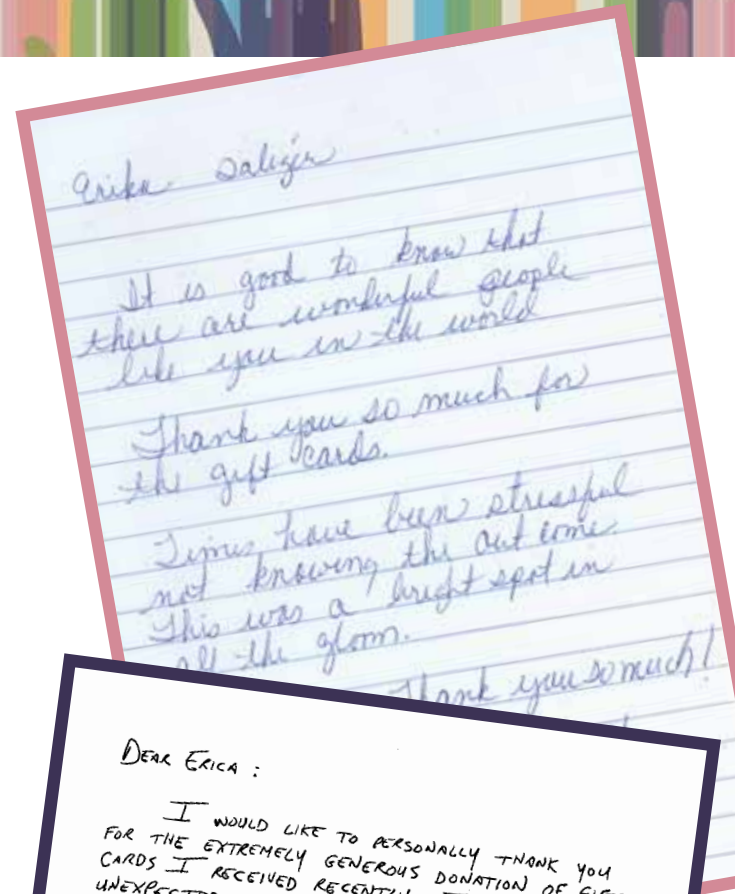 Erika
It is good to know that
there are wonderful people
like you in the world
Thank you so much for
the gift cards.
Times have been stressful
not knowing the out come.
This was a bright spot in
all the gloom.
Thank you so much!
DEAR ERICA :
I WOULD LIKE TO PERSONALLY THANK YOU
FOR THE EXTREMELY GENEROUS DONATION OF GIFT
CARDS I RECEIVED RECENTLY.